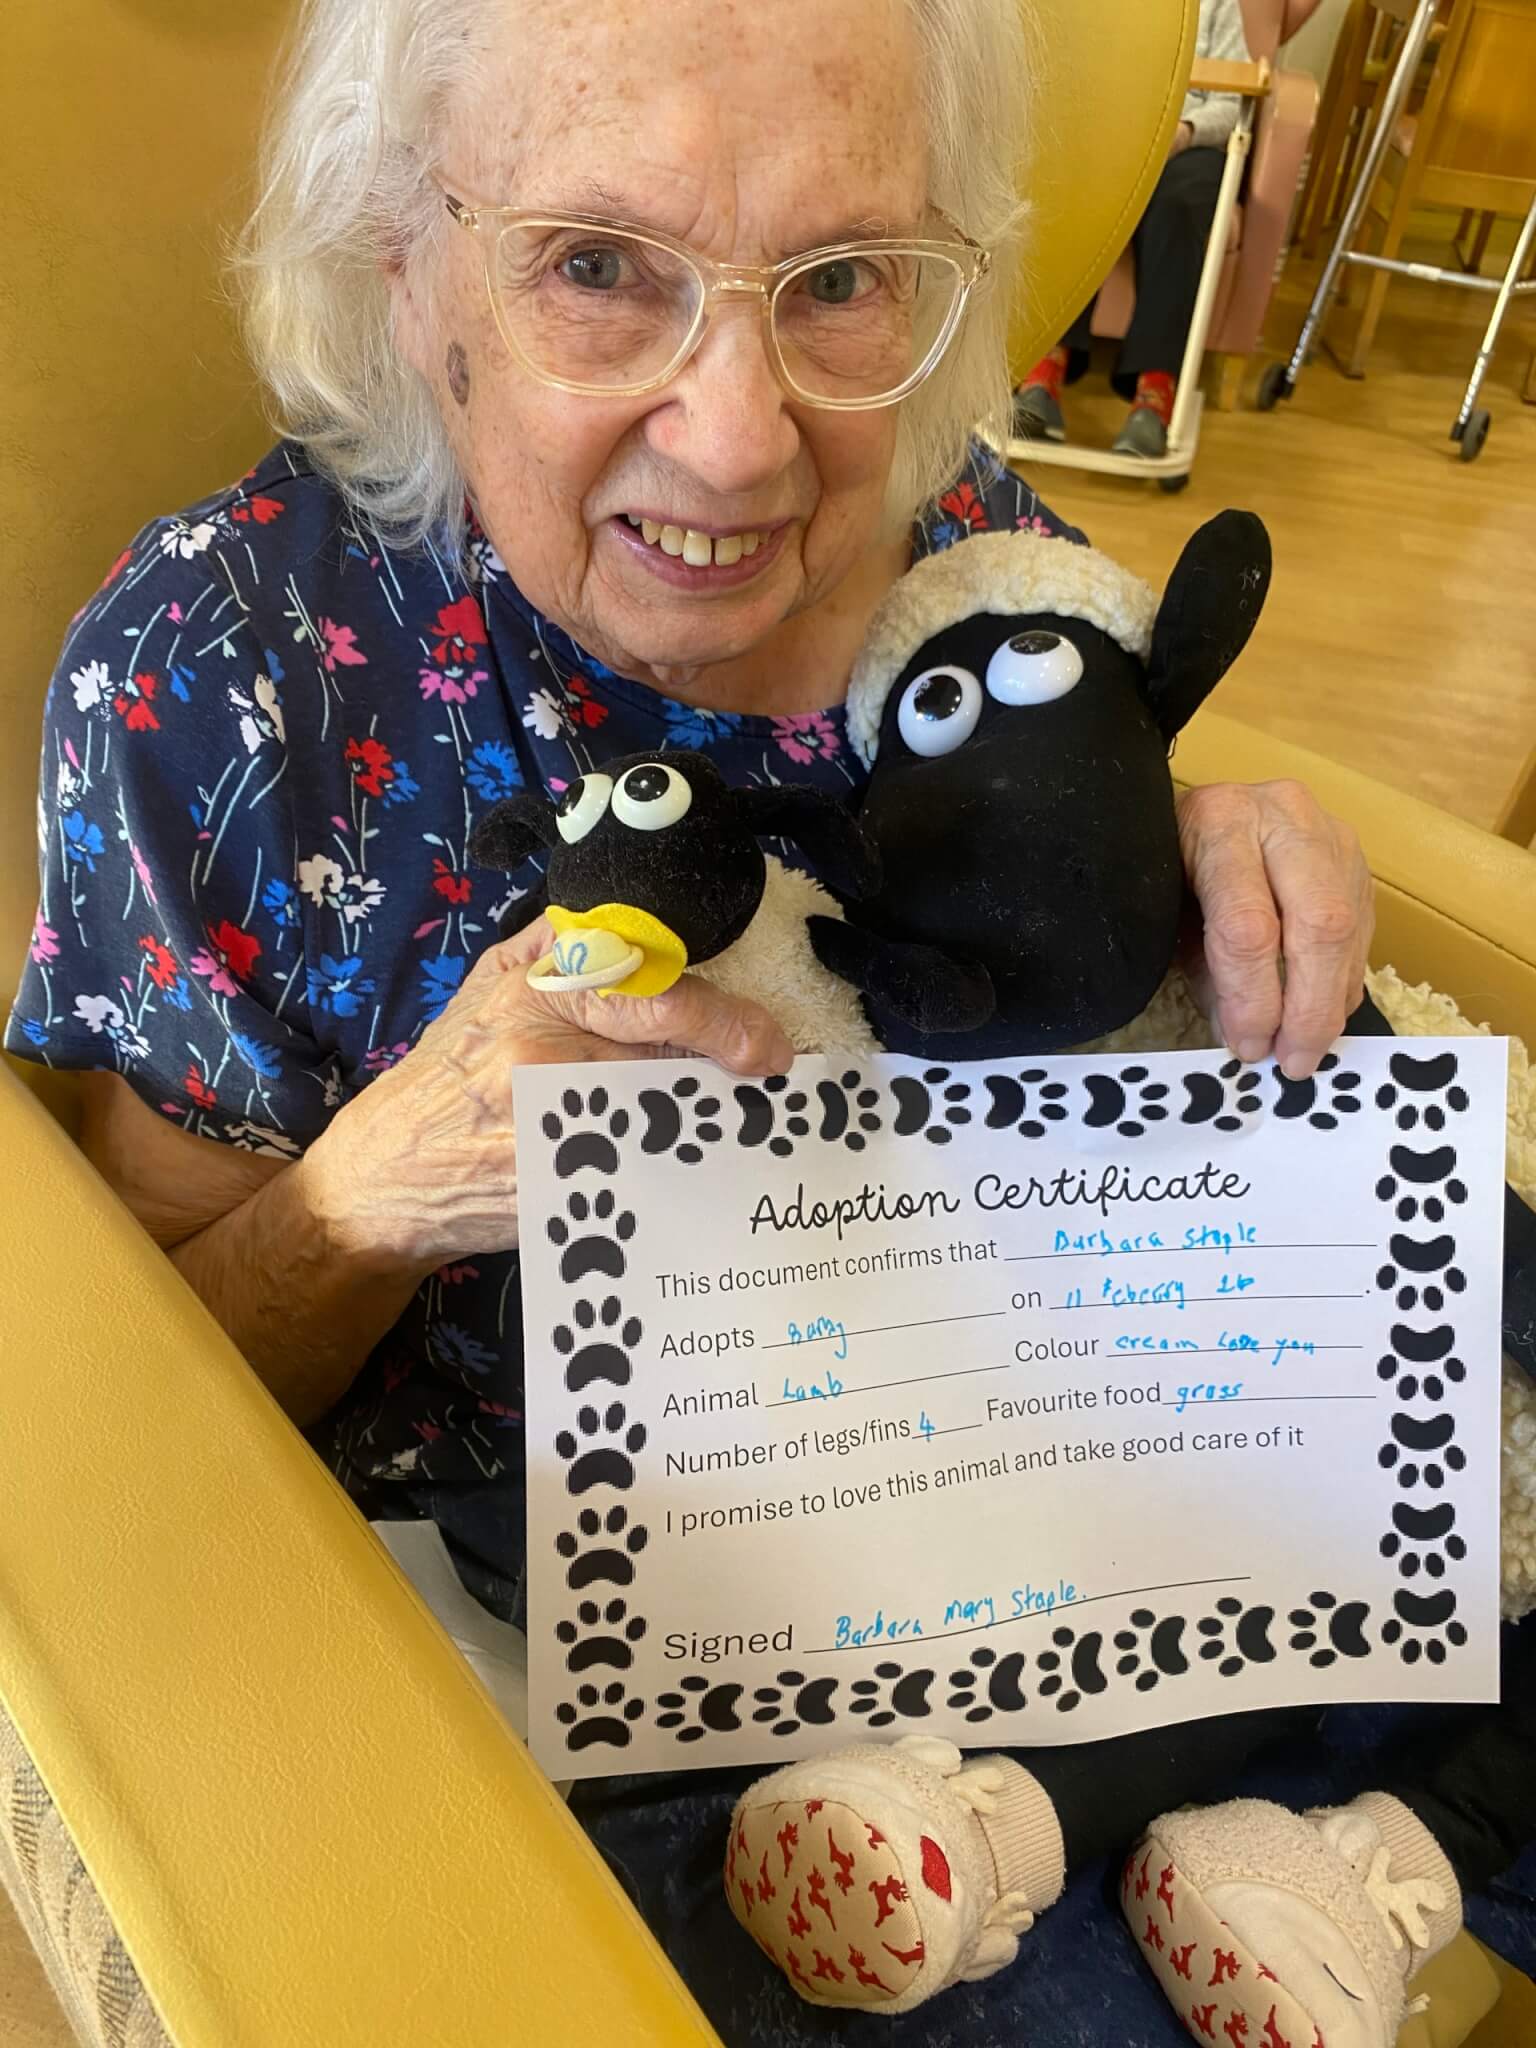 Adoption Certificate
This document confirms that Barbara Staple
Adopts Barny on 11 February 26.
Animal Lamb Colour cream Love you
Number of legs/fins 4 Favourite food grass
I promise to love this animal and take good care of it
Signed Barbara Mary Staple.